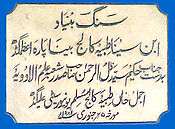 سنگ بنیاد
ابن سینا طبیہ کالج بینا پارہ اعظم گڈھ
بدست جناب حکیم سید ظل الرحمن صاحب صدر شعبہ علم الادویہ
اجمل خاں طبیہ کالج مسلم یونیورسٹی علیگڈھ
مورخہ ۲۵ جنوری